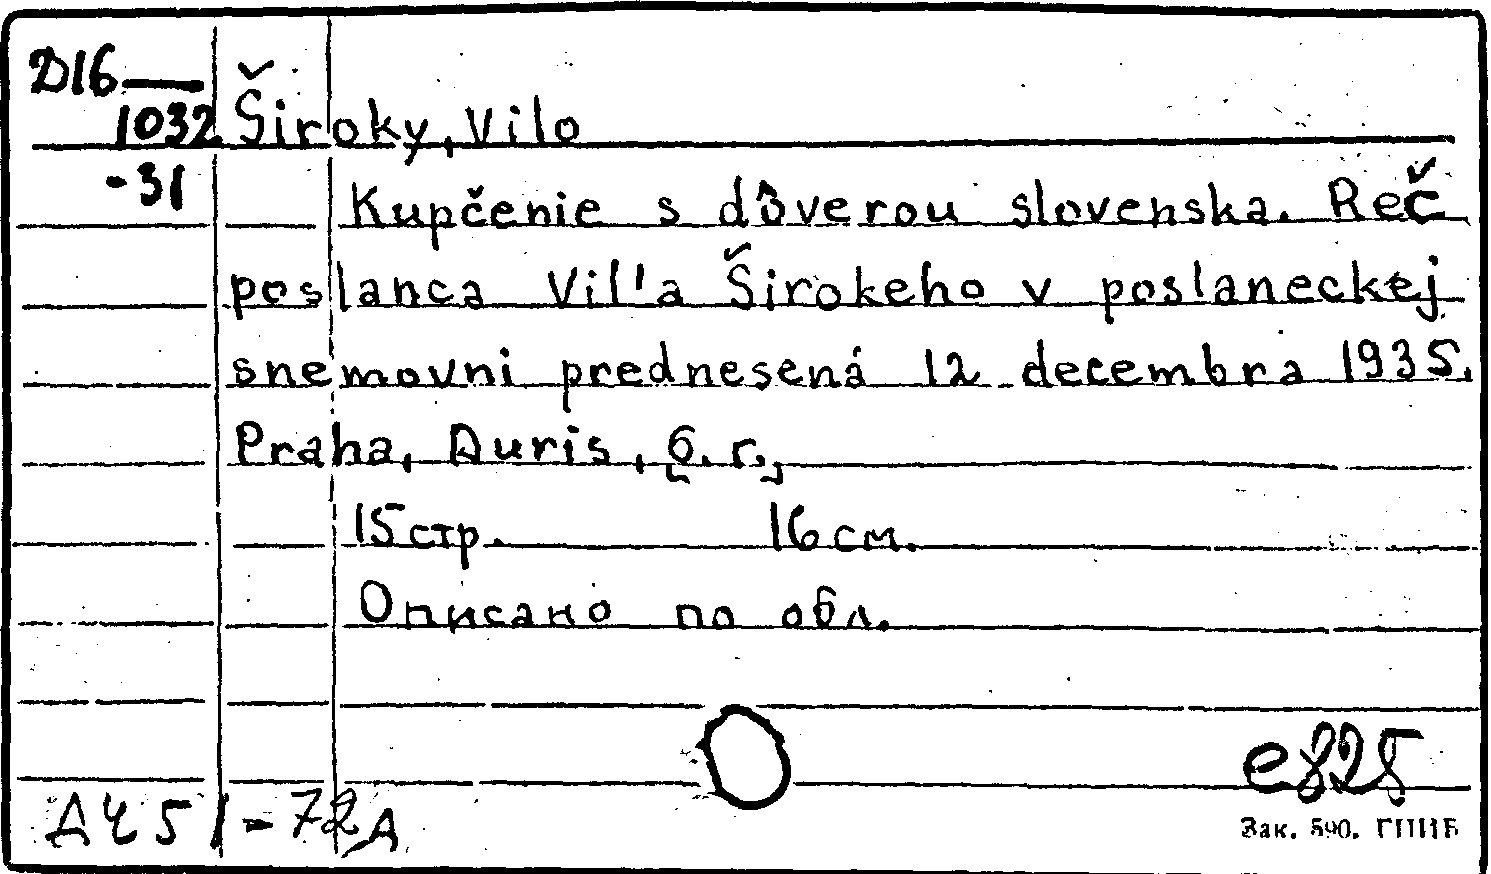 D16—
1032
-31
Široky, Vilo
Kupčenie s dôverou slovenska. Reč
poslanca Vil'a Širokeho v poslaneckej
snemovni prednesená 12 decembra 1935.
Praha, Auris, [б. г.],
15 стр. 16 см.
Описано по обл.
e825
Д451-72д
Зак. 590. ГППБ